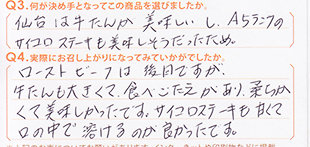 Q3.何が決め手となってこの商品を選びましたか。
仙台は牛たんが美味しいし、A5ランクの
サイコロステーキも美味しそうだったため。
Q4.実際にお召し上がりになってみていかがでしたか。
ローストビーフは後日ですが、
牛たんも大きくて、食べごたえがあり、柔らか
くて美味しかったです。サイコロステーキも甘くて
口の中で溶けるのが良かったです。